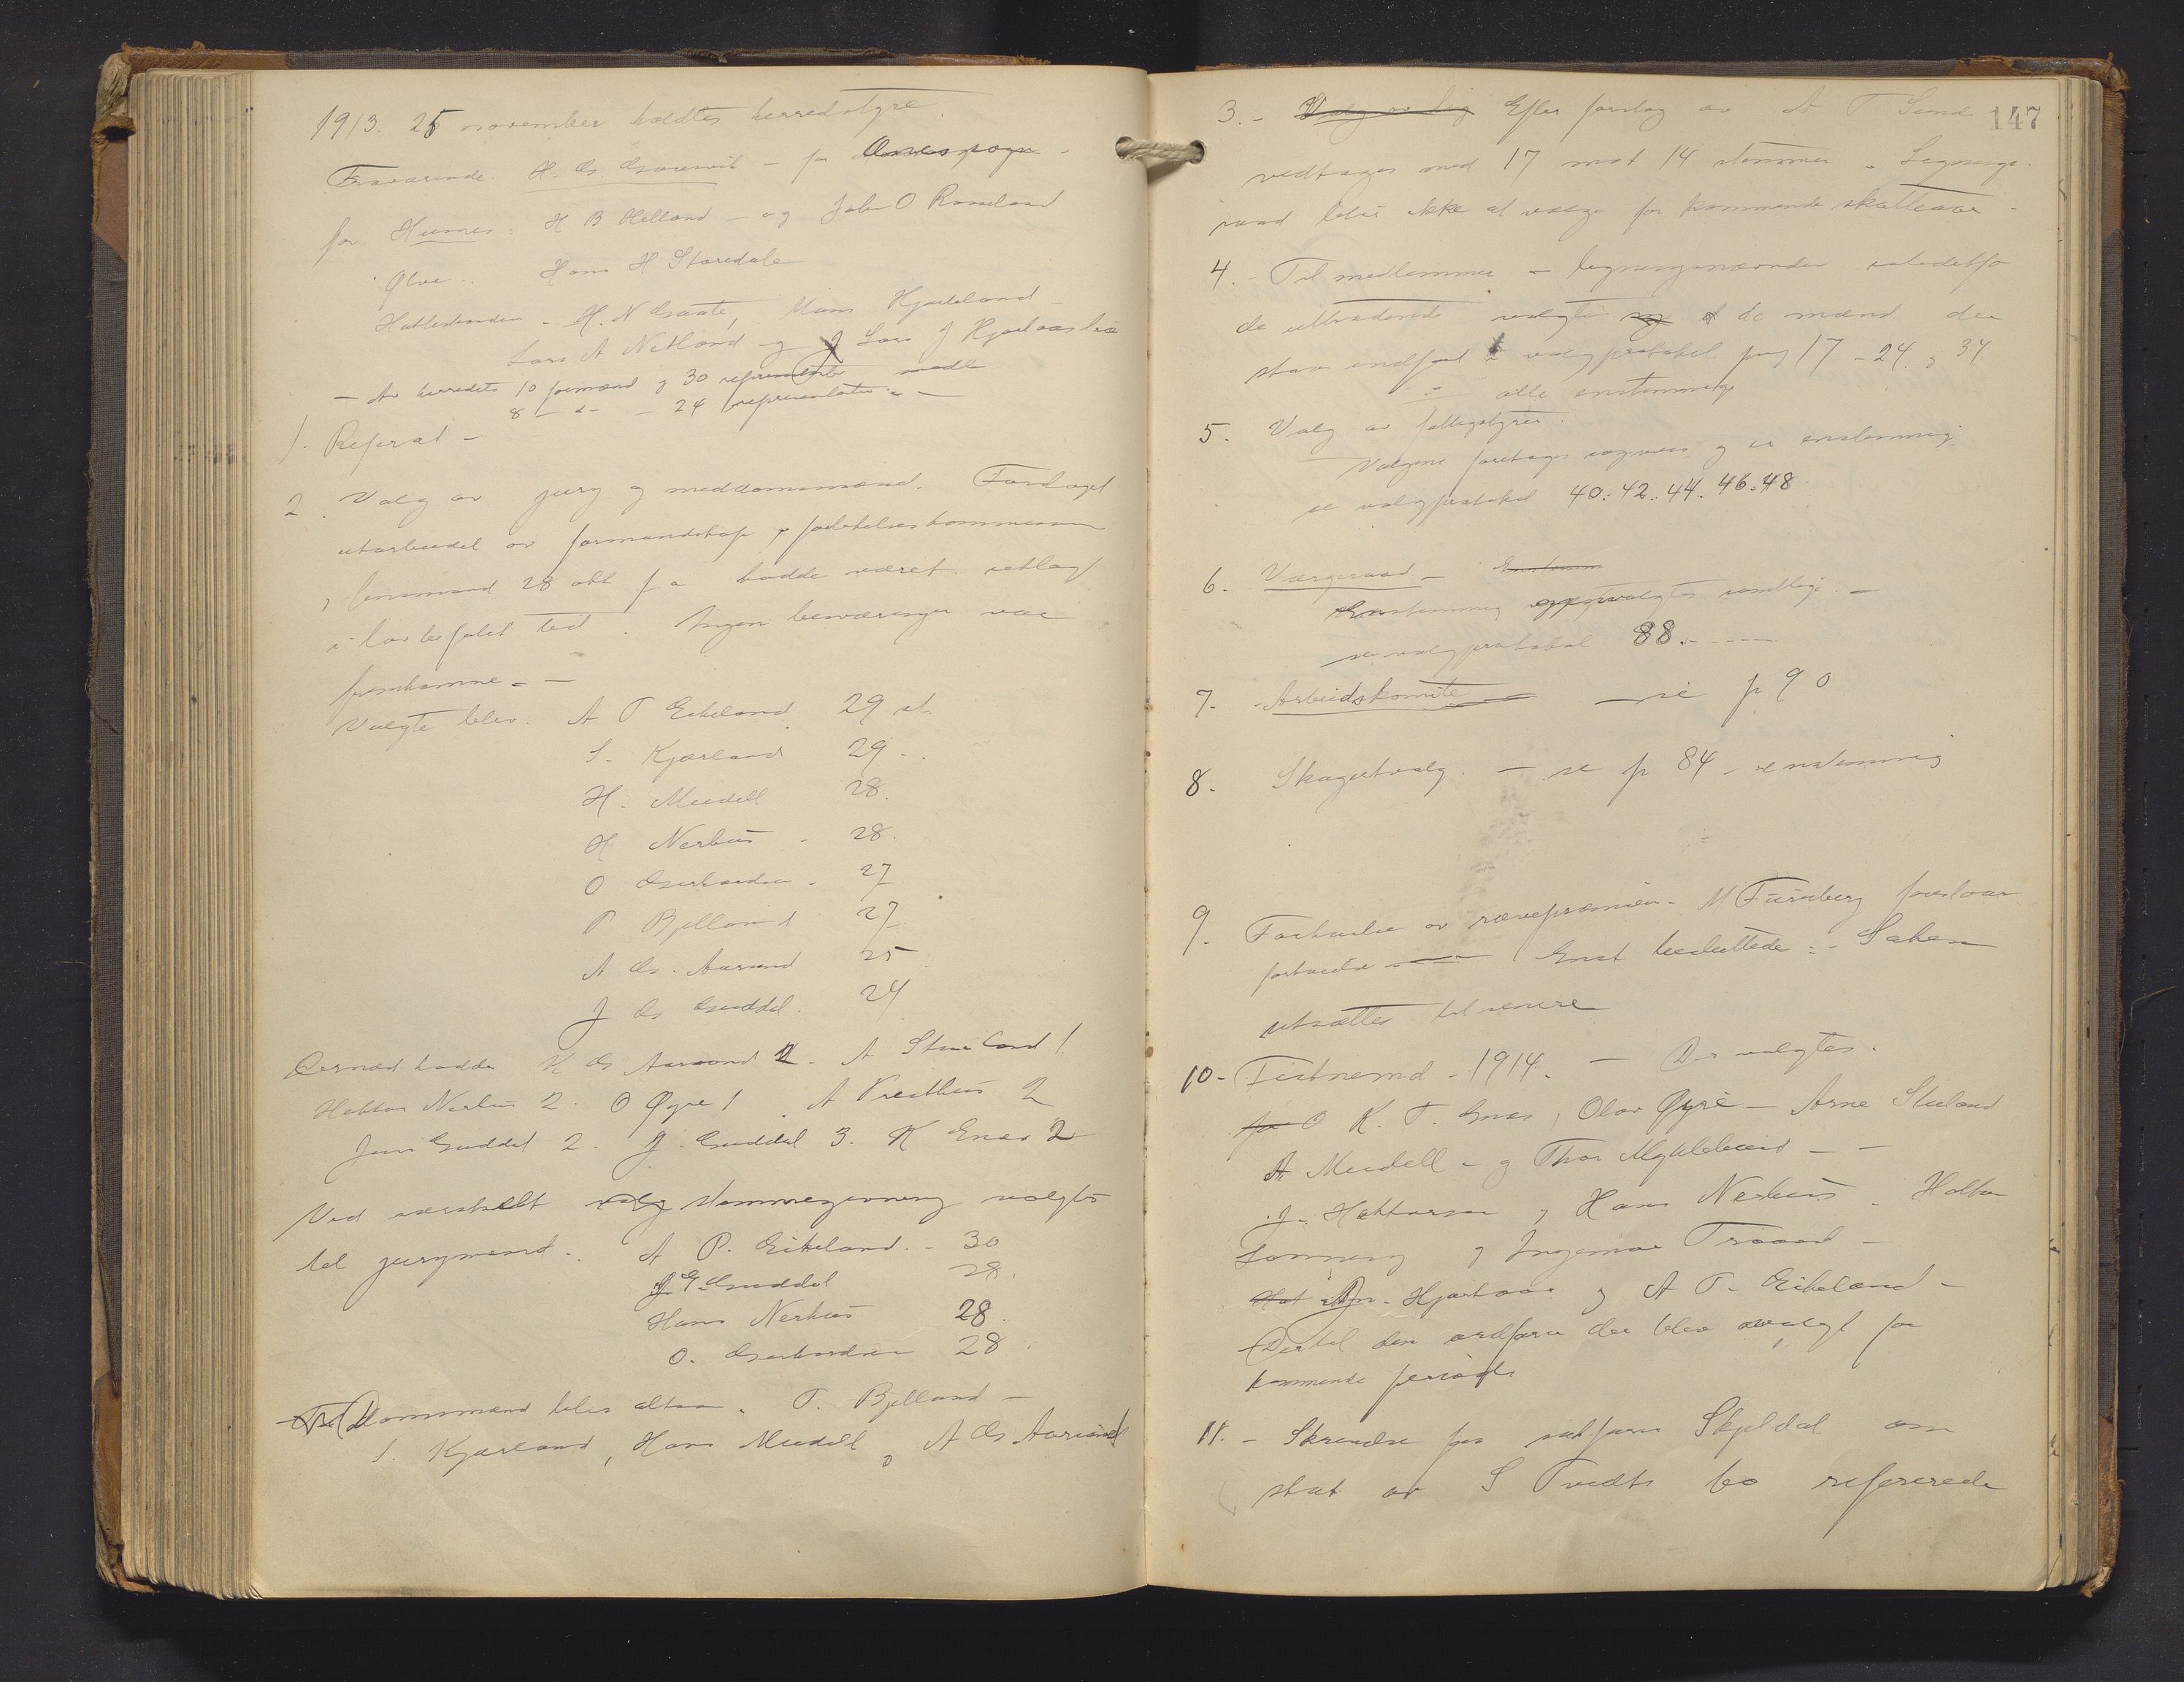 1913. 25 november holdtes herredstyre.
Fraværende H. G. Gausvik – for Ænes sogn –
for Husnes: H B Helland – og John O Røsseland
Ølve .. Hans H Storedale
Hatlestranden – H. N Gaate, Mons Hjarteland –
Lars A Netland og Lars J Hjartaas
– Av herredets 10 formænd og 30 repræsentanter møtte
8 – d – – 24 repræsentanter – –
1. Referat –
2. Valg av jury og meddomsmænd. Forslaget
utarbeidet av formandskap og forlikelseskommission
og lensmand 28 okt f a hadde været utlagt
i lovbefalet tid. Ingen besværinger var
fremkomne. –
Valgte blev. A T Eikeland 29 st.
S. Kjærland 29 ..
H. Mundell 28.
H Nerhus . 28.
O Gerhardsen . 27
P Bjelland 27
A G. Aarsand 25
J G Guddal. 24
Dernæst hadde H G Aarsand 2. A Stueland 1.
Hattor Nerhus 2. O Øyre 1. A Presthus 2
Jens Guddal 2. J. Guddal 3. K Enæs 2
Ved særskilt valg stemmegivning valgtes
til jurymænd. A P. Eikeland. – 30
J G. Guddal 28.
Hans Nerhus 28.
O. Gerhardsen 28.
Domsmænd blev altsaa. T. Bjelland –
S. Kjærland, Hans Mundell og A G Aarsand
147
3. – Efter forslag av A T Sund
vedtages med 17 mot 14 stemmer – Lignings
raad blir ikke at vælge for kommende skatteaar –
4. – Til medlemmer – ligningsnævnder istedetfor
de uttrædende valgtes de mænd der
staar indført i valgprotokol pag 17 – 24 og 34
– alle enstemmig
5. Valg av fattigstyrer.
Valgene foretages sognevis og er enstemmig
se valgprotokol 40 : 42 : 44 : 46 : 48
6. Værgeraad –
Enstemmig gjenvalgtes samtlige. –
se valgprotokol 88. – – –
7. Arbeidskomite – – se p 90
8. Skogutvalg. – se p 84 – enstemmig
9. Forhøielse av rævepræmien. M Furuberg foreslaar
forhøielse – Enst besluttede : – Saken
utsættes til senere
10 – Tilsynsmænd – 1914. – Der valgtes.
K. T. Enæs, Olav Øyre – Arne Stueland
A Mundell – og Thor Myklebust – –
J. Hattorsen og Hans Nerhus . Haktor
Lønning og Ingemar Traaad –
Hjartaas og A T. Eikeland –
Dertil den ordfører der blev valgt for
kommende periode
11. – Skrivelse fra sakfører Skjeldal om
skat av S Tvedts bo refererede